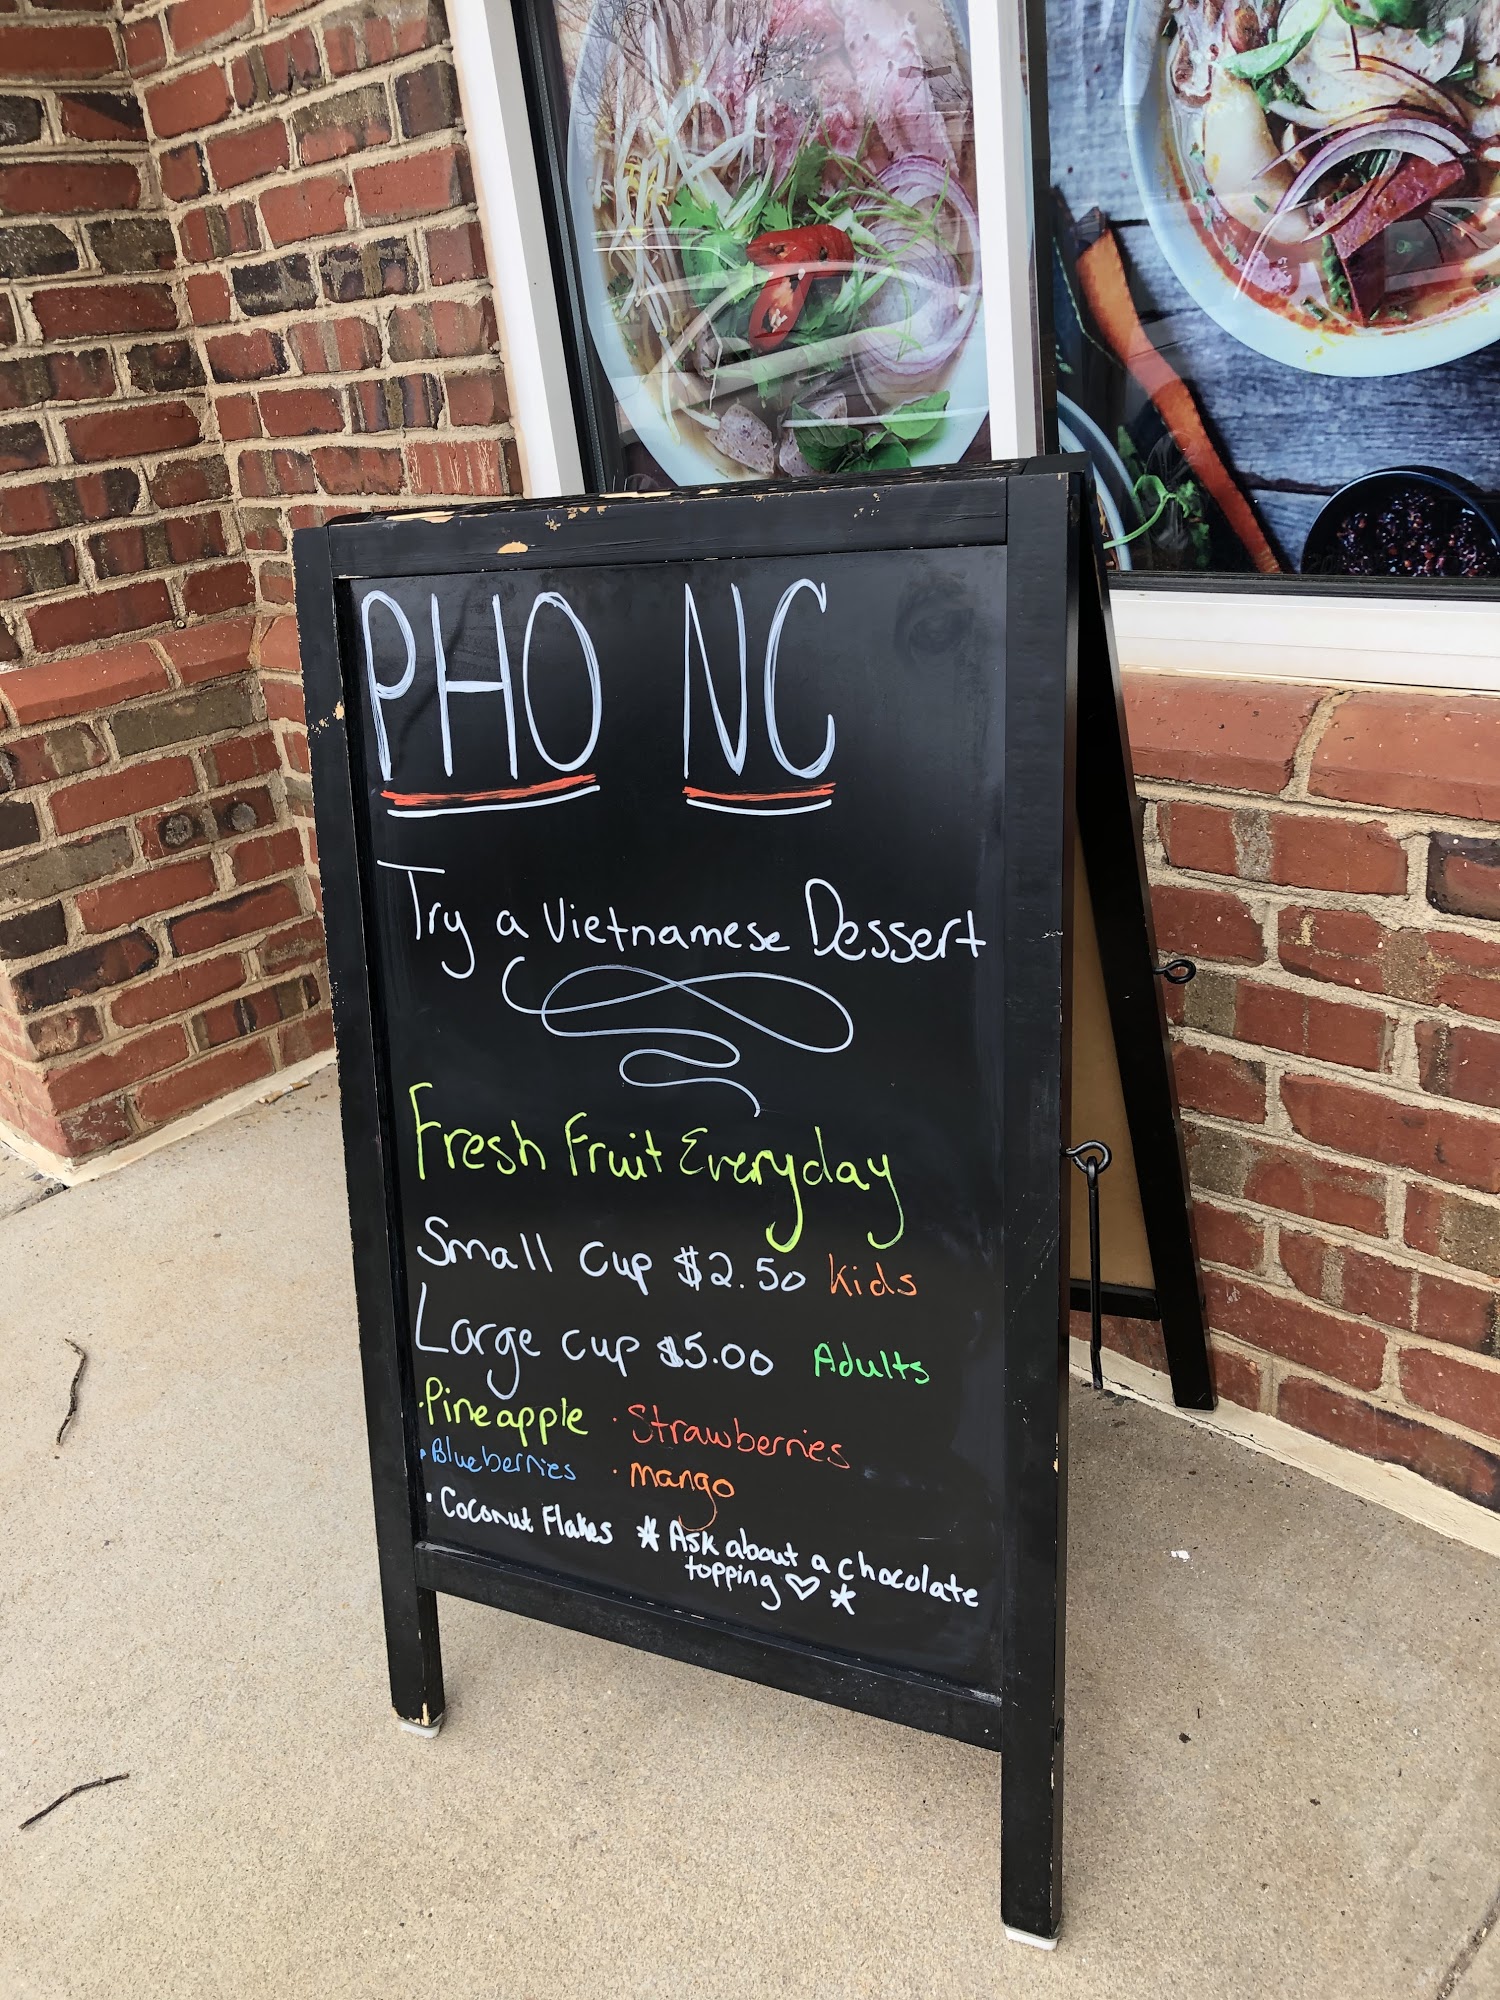 PHO NC
Try a Vietnamese Dessert
Fresh Fruit Everyday
Small Cup $2.50 Kids
Large cup $5.00 Adults
· Pineapple · Strawberries
· Blueberries · mango
· Coconut Flakes * Ask about a chocolate
topping ♡ *